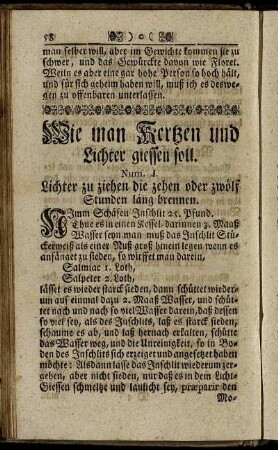 58
man selber will, aber im Gewichte kommen sie zu
schwer, und das Gewürckte davon wie Floret.
Weiln es aber eine gar hohe Person so hoch hält,
und für sich geheim haben will, muß ich es deswe-
gen zu offenbaren unterlassen.
Wie man Kertzen und
Lichter giessen soll.
Num. 1.
Lichter zu ziehen die zehen oder zwölf
Stunden lang brennen.
NImm Schäfen Inschlit 25. Pfund.
Thue es in einen Kessel, darinnen 3. Maaß
Wasser seyn, man muß das Inschlit Stü-
ckerweiß als einer Nuß groß hinein legen wenn es
anfänget zu sieden, so wirffet man darein,
Salmiac 1. Loth,
Salpeter 2. Loth,
lässet es wieder starck sieden, dann schüttet wieder-
um auf einmal dazu 2. Maaß Wasser, und schüt-
tet nach und nach so viel Wasser darein, daß dessen
so viel sey, als des Inschlits, laß es starck sieden,
schaume es ab, und laß hernach erkalten, schütte
das Wasser weg, und die Unreinigkeit, so in Bo-
den des Inschlits sich erzeiget und angesetzet haben
möchte: Alsdann lasse das Inschlit wiederum zer-
gehen, aber nicht sieden, nur daß es in dem Licht-
Giessen schmeltze und laulicht sey, præparir den
Mo-